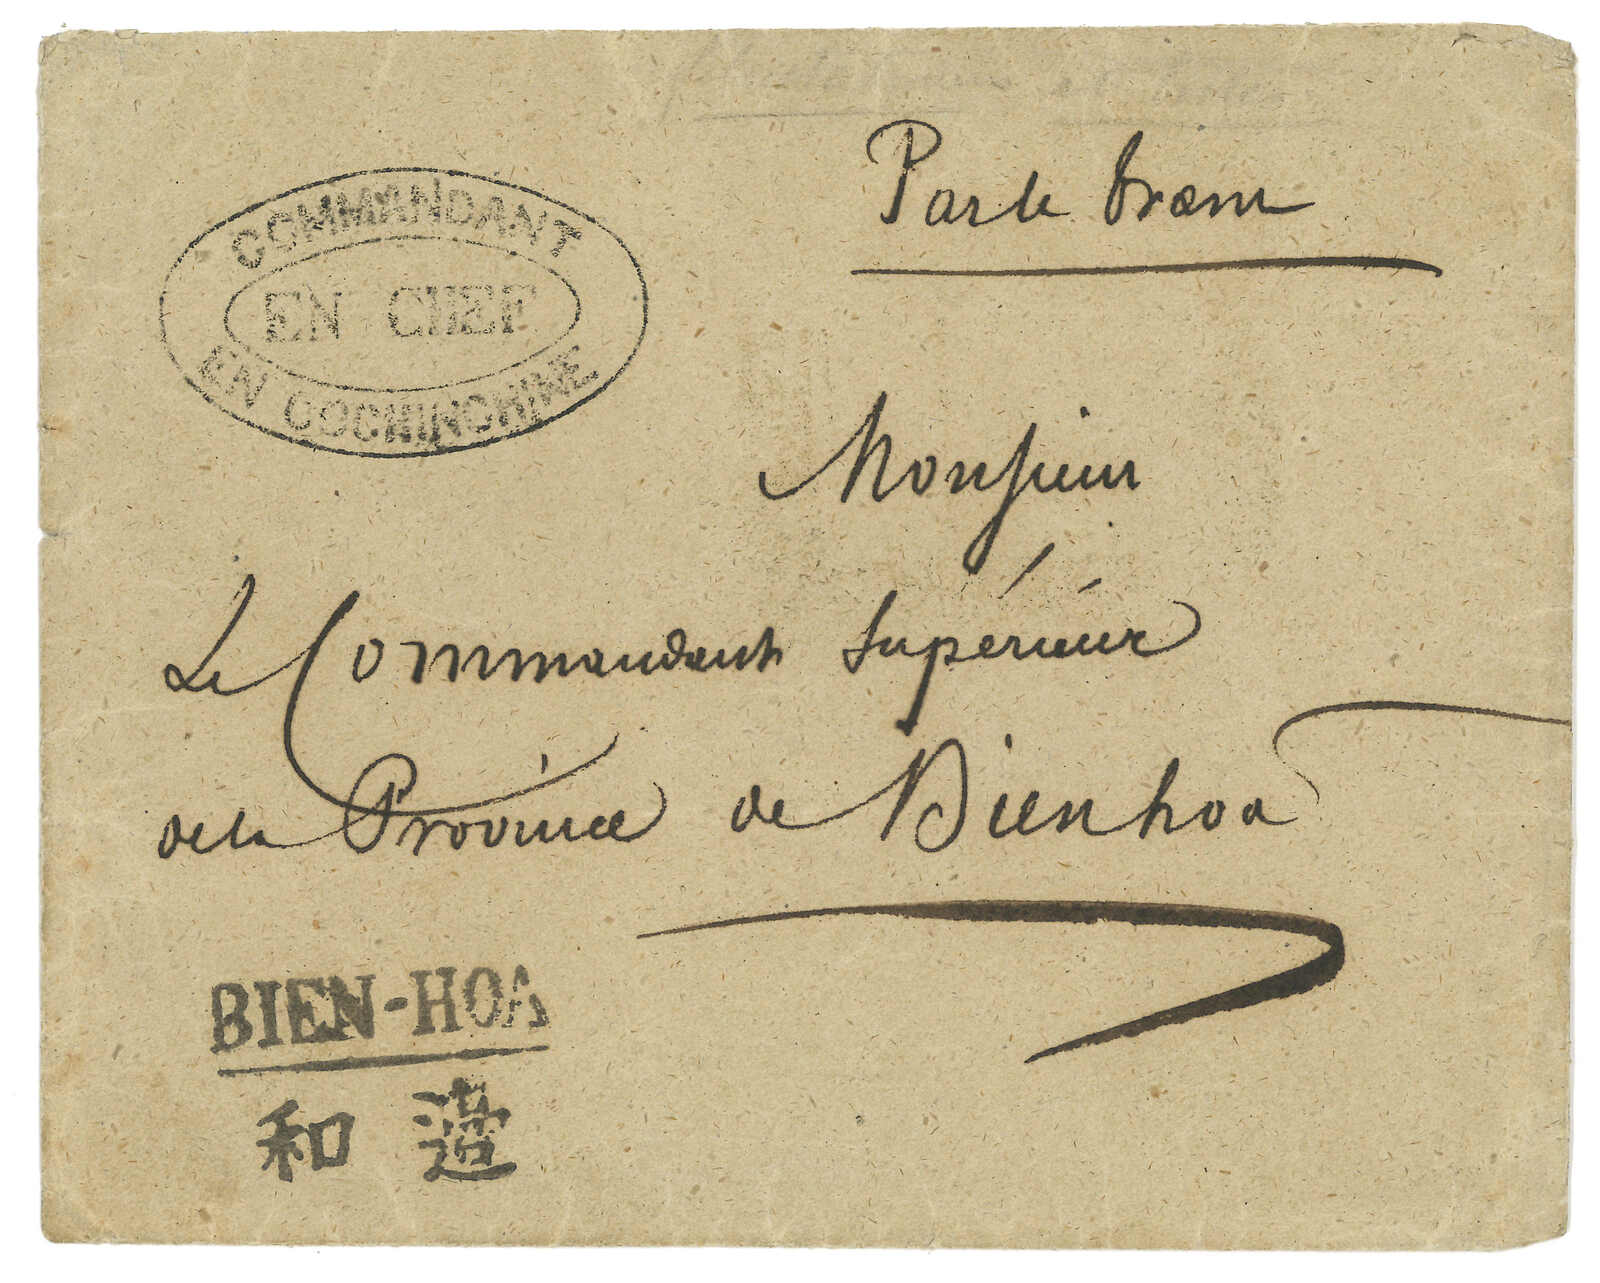 COMMANDANT
EN CHEF
EN COCHINCHINE.
Par le tram
Monsieur
Le Commandant Supérieur
de la Province de Bienhoa
BIEN-HOA
和 邊